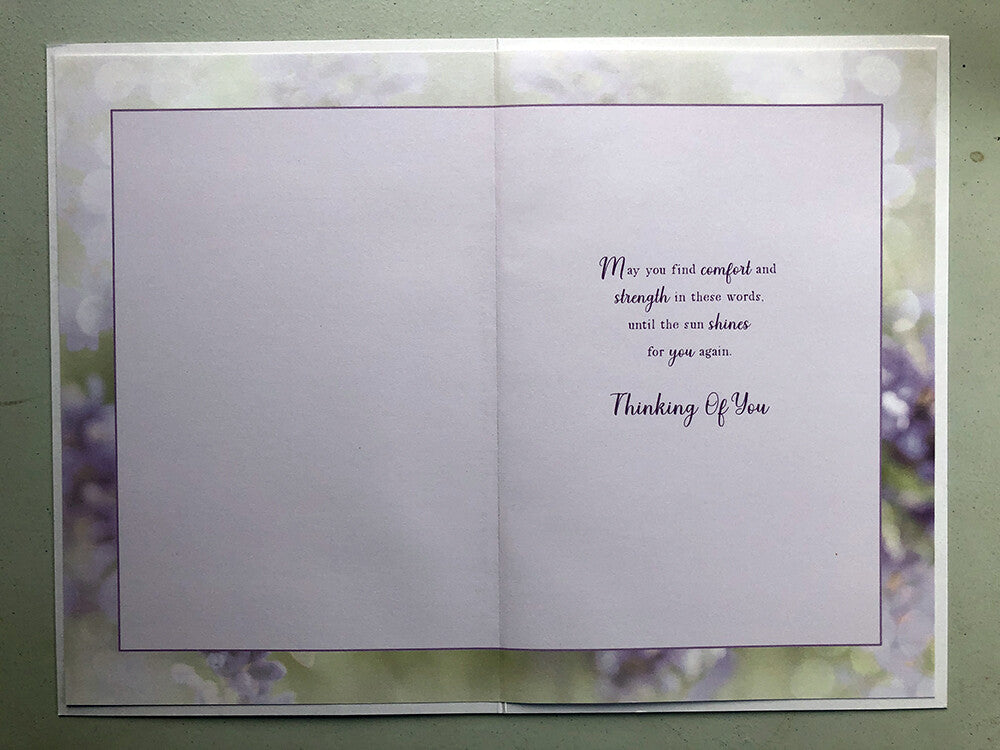 May you find comfort and
strength in these words,
until the sun shines
for you again.
Thinking Of You